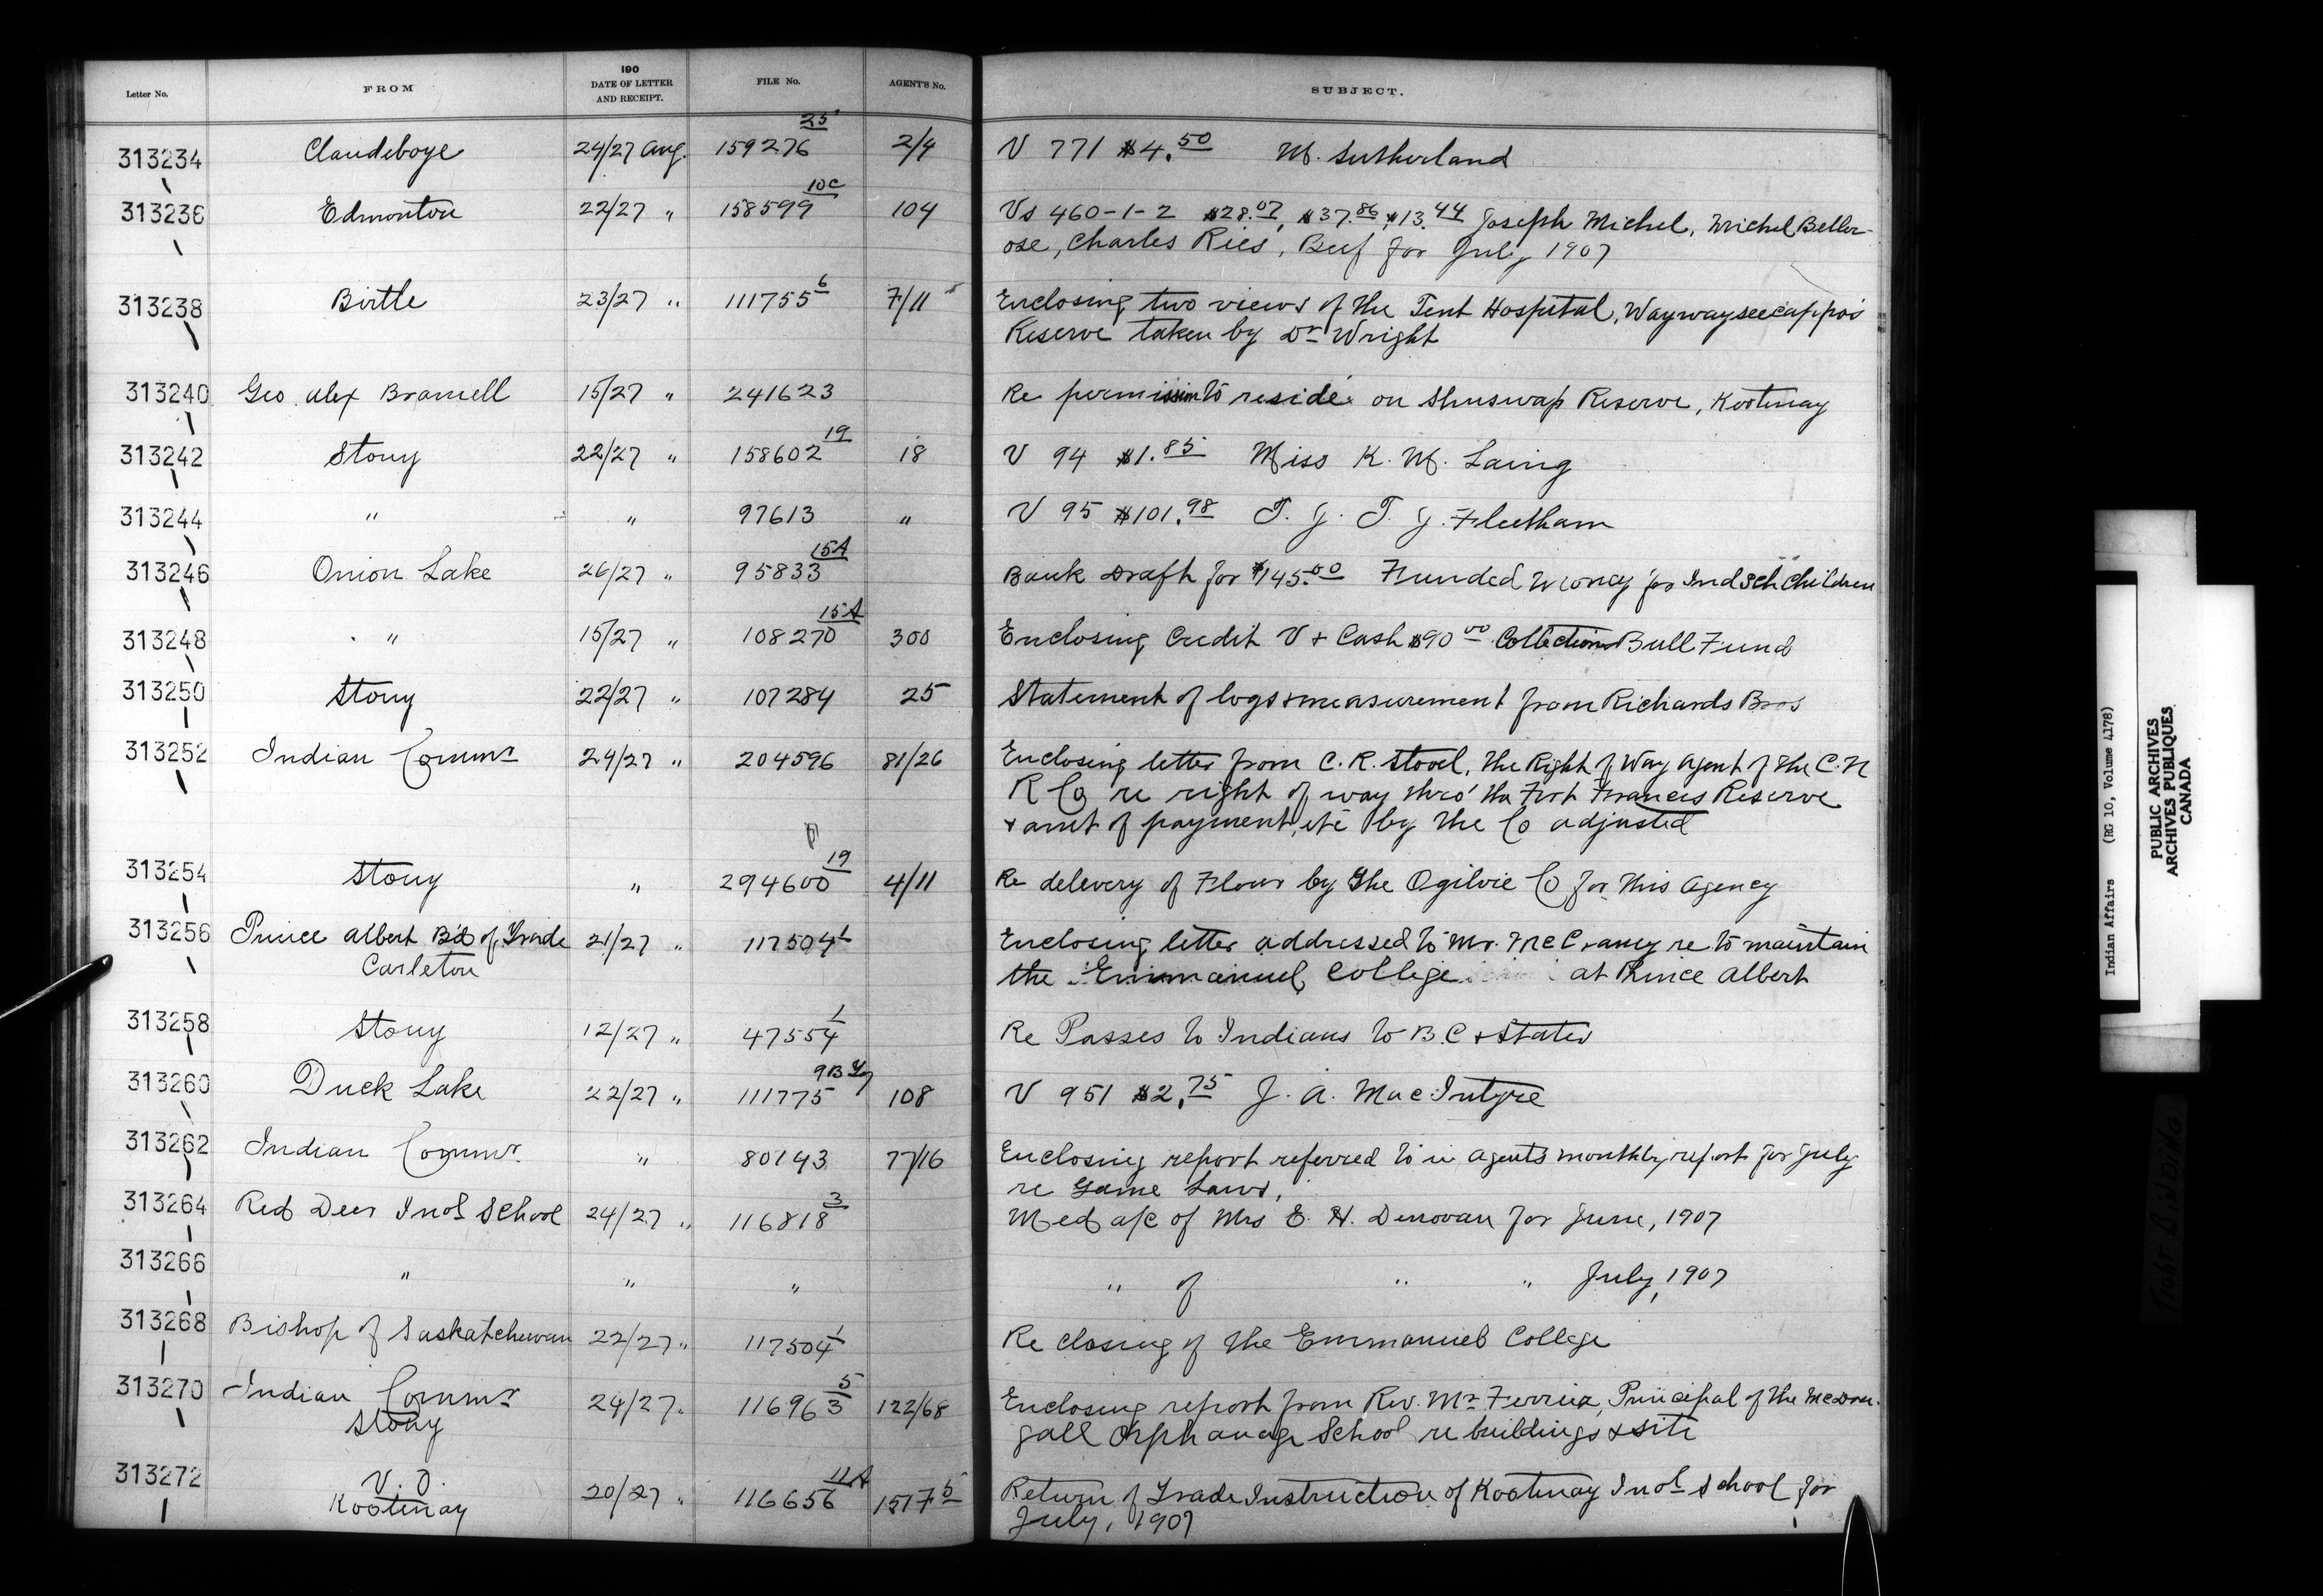 Letter No. FROM 190 DATE OF LETTER AND RECEIPT. FILE No. AGENT'S No. SUBJECT.
313234 Clandeboye 24/27 Aug. 159276 25 2/4 V 771 $4.50 M. Sutherland
313236 Edmonton 22/27 " 158599 10C 104 Vs 460-1-2 $28.07, $37.86, $13.44 Joseph Michel, Michel Beller-
ose, Charles Ries, Beef for July 1907
313238 Birtle 23/27 " 111755 6 7/11 Enclosing two views of the Tent Hospital, Waywayseecappo's
Reserve taken by Dr Wright
313240 Geo Alex Bramell 15/27 " 241623 Re permission to reside on Shuswap Reserve, Kootenay
313242 Stony 22/27 " 158602 19 18 V 94 $1.85 Miss K. M. Laing
313244 " " 97613 " V 95 $101.98 T. J. T. J. Fleetham
313246 Onion Lake 26/27 " 95833 15A Bank Draft for $145.00 Funded Money for Ind Sch Children
313248 " 15/27 " 108270 15A 300 Enclosing Credit V + Cash $90 00 Collections Bull Fund
313250 Stony 22/27 " 107284 25 Statement of logs + measurement from Richards Bros
313252 Indian Commr 24/27 " 204596 81/26 Enclosing letter from C. R. Stovel, the Right of Way Agent of the C. N
R Co re right of way thro' the Fort Frances Reserve
+ amt of payment, etc by the Co adjusted
313254 Stony " 294600 19 4/11 Re delevery of Flour by the Ogilvie Co for this Agency
313256 Prince Albert B'd of Trade 21/27 " 117504 1 Enclosing letter addressed to Mr. McCraney re to maintain
Carleton the Emmanuel College at Prince Albert
313258 Stony 12/27 " 47554 1 Re Passes to Indians to B.C + States
313260 Duck Lake 22/27 " 111775 9B 108 V 951 $2.75 J. A. MacIntyre
313262 Indian Commr " 80143 77/16 Enclosing report referred to in agents monthly report for July
re Game Laws,
313264 Red Deer Indl School 24/27 " 116818 3 Med a/c of Mrs E. H. Denovan for June, 1907
313266 " " " " of " " July, 1907
313268 Bishop of Saskatchewan 22/27 " 117504 1 Re closing of the Emmanuel College
313270 Indian Commr 24/27 " 116963 5 122/68 Enclosing report from Rev. Mr Ferrier, Principal of the McDou-
Stony gall Orphanage School re buildings + site
313272 V. O. 20/27 " 116656 11A 1517 5 Return of Trade Instruction of Kootenay Indl School for
Kootenay July, 1907
Indian Affairs (RG 10, Volume 4178)
PUBLIC ARCHIVES
ARCHIVES PUBLIQUES
CANADA
TIGHT BINDING